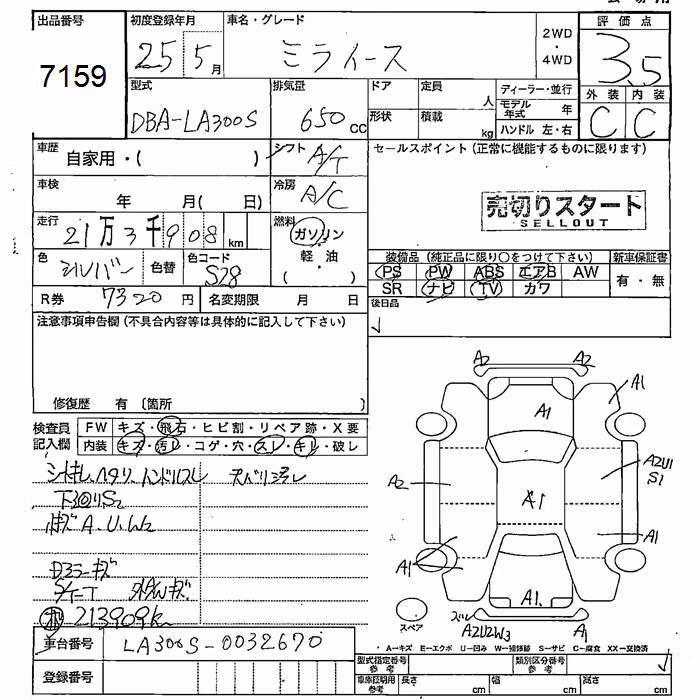 出品番号
7159
初度登録年月
25 5月
車名・グレード
ミライース
2WD
・
4WD
評価点
3.5
型式
DBA-LA300S
排気量
650cc
ドア
定員
人
形状
積載
kg
ディーラー・並行
モデル年式
年
ハンドル 左・右
外装
C
内装
C
車歴
自家用・( )
シフト
A/T
セールスポイント(正常に機能するものに限ります)
車検
年 月( 日)
冷房
A/C
売切りスタート
SELLOUT
走行
21万3千908km
燃料
ガソリン
軽・油
( )
色
シルバー
色替
色コード
S28
装備品(純正品に限り○をつけて下さい)
新車保証書
PS PW ABS エアB AW
SR ナビ TV カワ
有・無
R券
7320円
名変期限 月 日
後日品
注意事項申告欄(不具合内容等は具体的に記入して下さい)
修復歴 有〔箇所 〕
検査員
記入欄
FW キズ・飛石・ヒビ割・リペア跡・X要
内装 キズ・汚レ・コゲ・穴・スレ・キレ・破レ
シートキレ、ヘタリ、ハンドルスレ 天バリ汚レ
下回りS2
A.U.W2
キズ
213909k
車台番号
LA300S-0032670
登録番号
A2 A2
A1 A1
A2 A2U1
S1
A1
A1 A1
A1
スペア
A2U2W3 A1
・A-キズ E-エクボ U-凹み W-補修跡 S-サビ C-腐食 XX-交換済
型式指定番号
参考
類別区分番号
参考
車庫証明用
参考
長さ cm 幅 cm 高さ cm